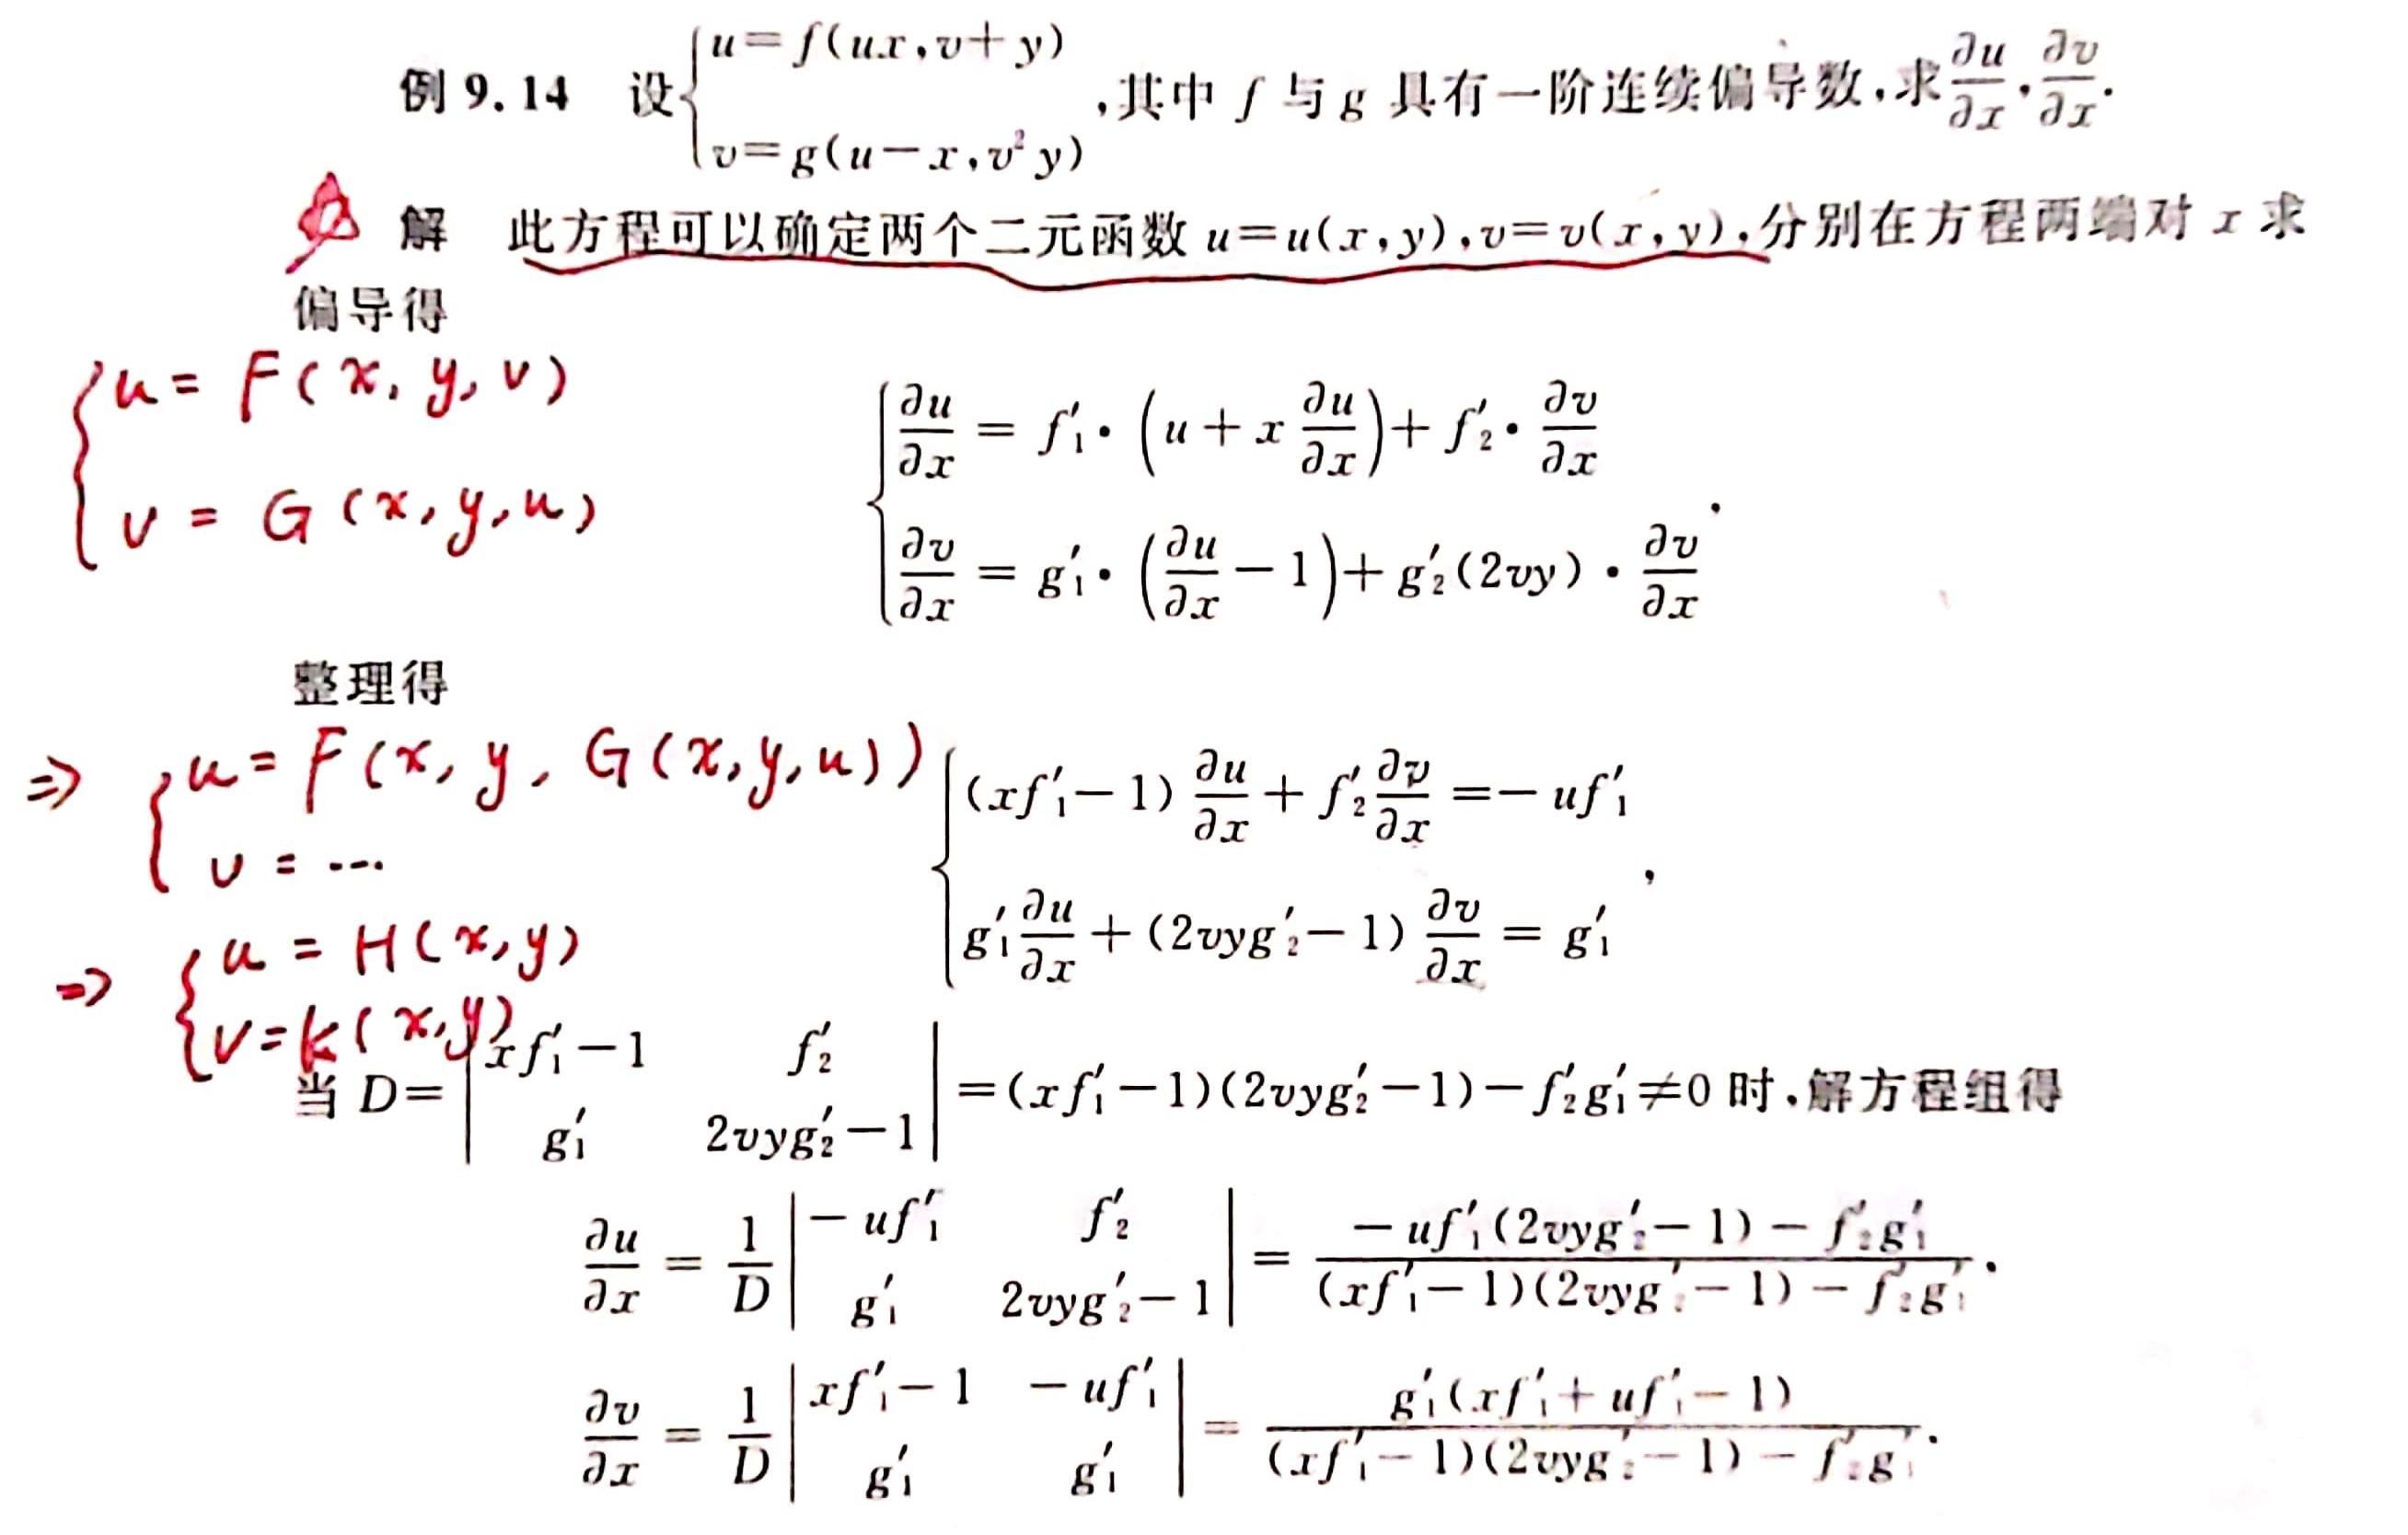 例 9.14 设{u=f(ux,v+y)
v=g(u-x,v²y) ,其中 f 与 g 具有一阶连续偏导数,求∂u/∂x,∂v/∂x.
解 此方程可以确定两个二元函数 u=u(x,y),v=v(x,y),分别在方程两端对 x 求
偏导得
{u = F(x, y, v)
v = G(x, y, u)
{∂u/∂x = f′₁·(u + x ∂u/∂x) + f′₂·∂v/∂x
∂v/∂x = g′₁·(∂u/∂x - 1) + g′₂(2vy)·∂v/∂x.
整理得
⇒ {u = F(x, y, G(x, y, u))
v = ...
{(xf′₁ - 1)∂u/∂x + f′₂ ∂v/∂x = - uf′₁
g′₁ ∂u/∂x + (2vyg′₂ - 1)∂v/∂x = g′₁,
⇒ {u = H(x, y)
v = k(x, y)
当 D=|xf′₁-1 f′₂
g′₁ 2vyg′₂-1|=(xf′₁-1)(2vyg′₂-1)-f′₂g′₁≠0 时,解方程组得
∂u/∂x = 1/D |-uf′₁ f′₂
g′₁ 2vyg′₂-1| = (-uf′₁(2vyg′₂-1)-f′₂g′₁)/((xf′₁-1)(2vyg′₂-1)-f′₂g′₁).
∂v/∂x = 1/D |xf′₁-1 -uf′₁
g′₁ g′₁| = g′₁(xf′₁+uf′₁-1)/((xf′₁-1)(2vyg′₂-1)-f′₂g′₁).